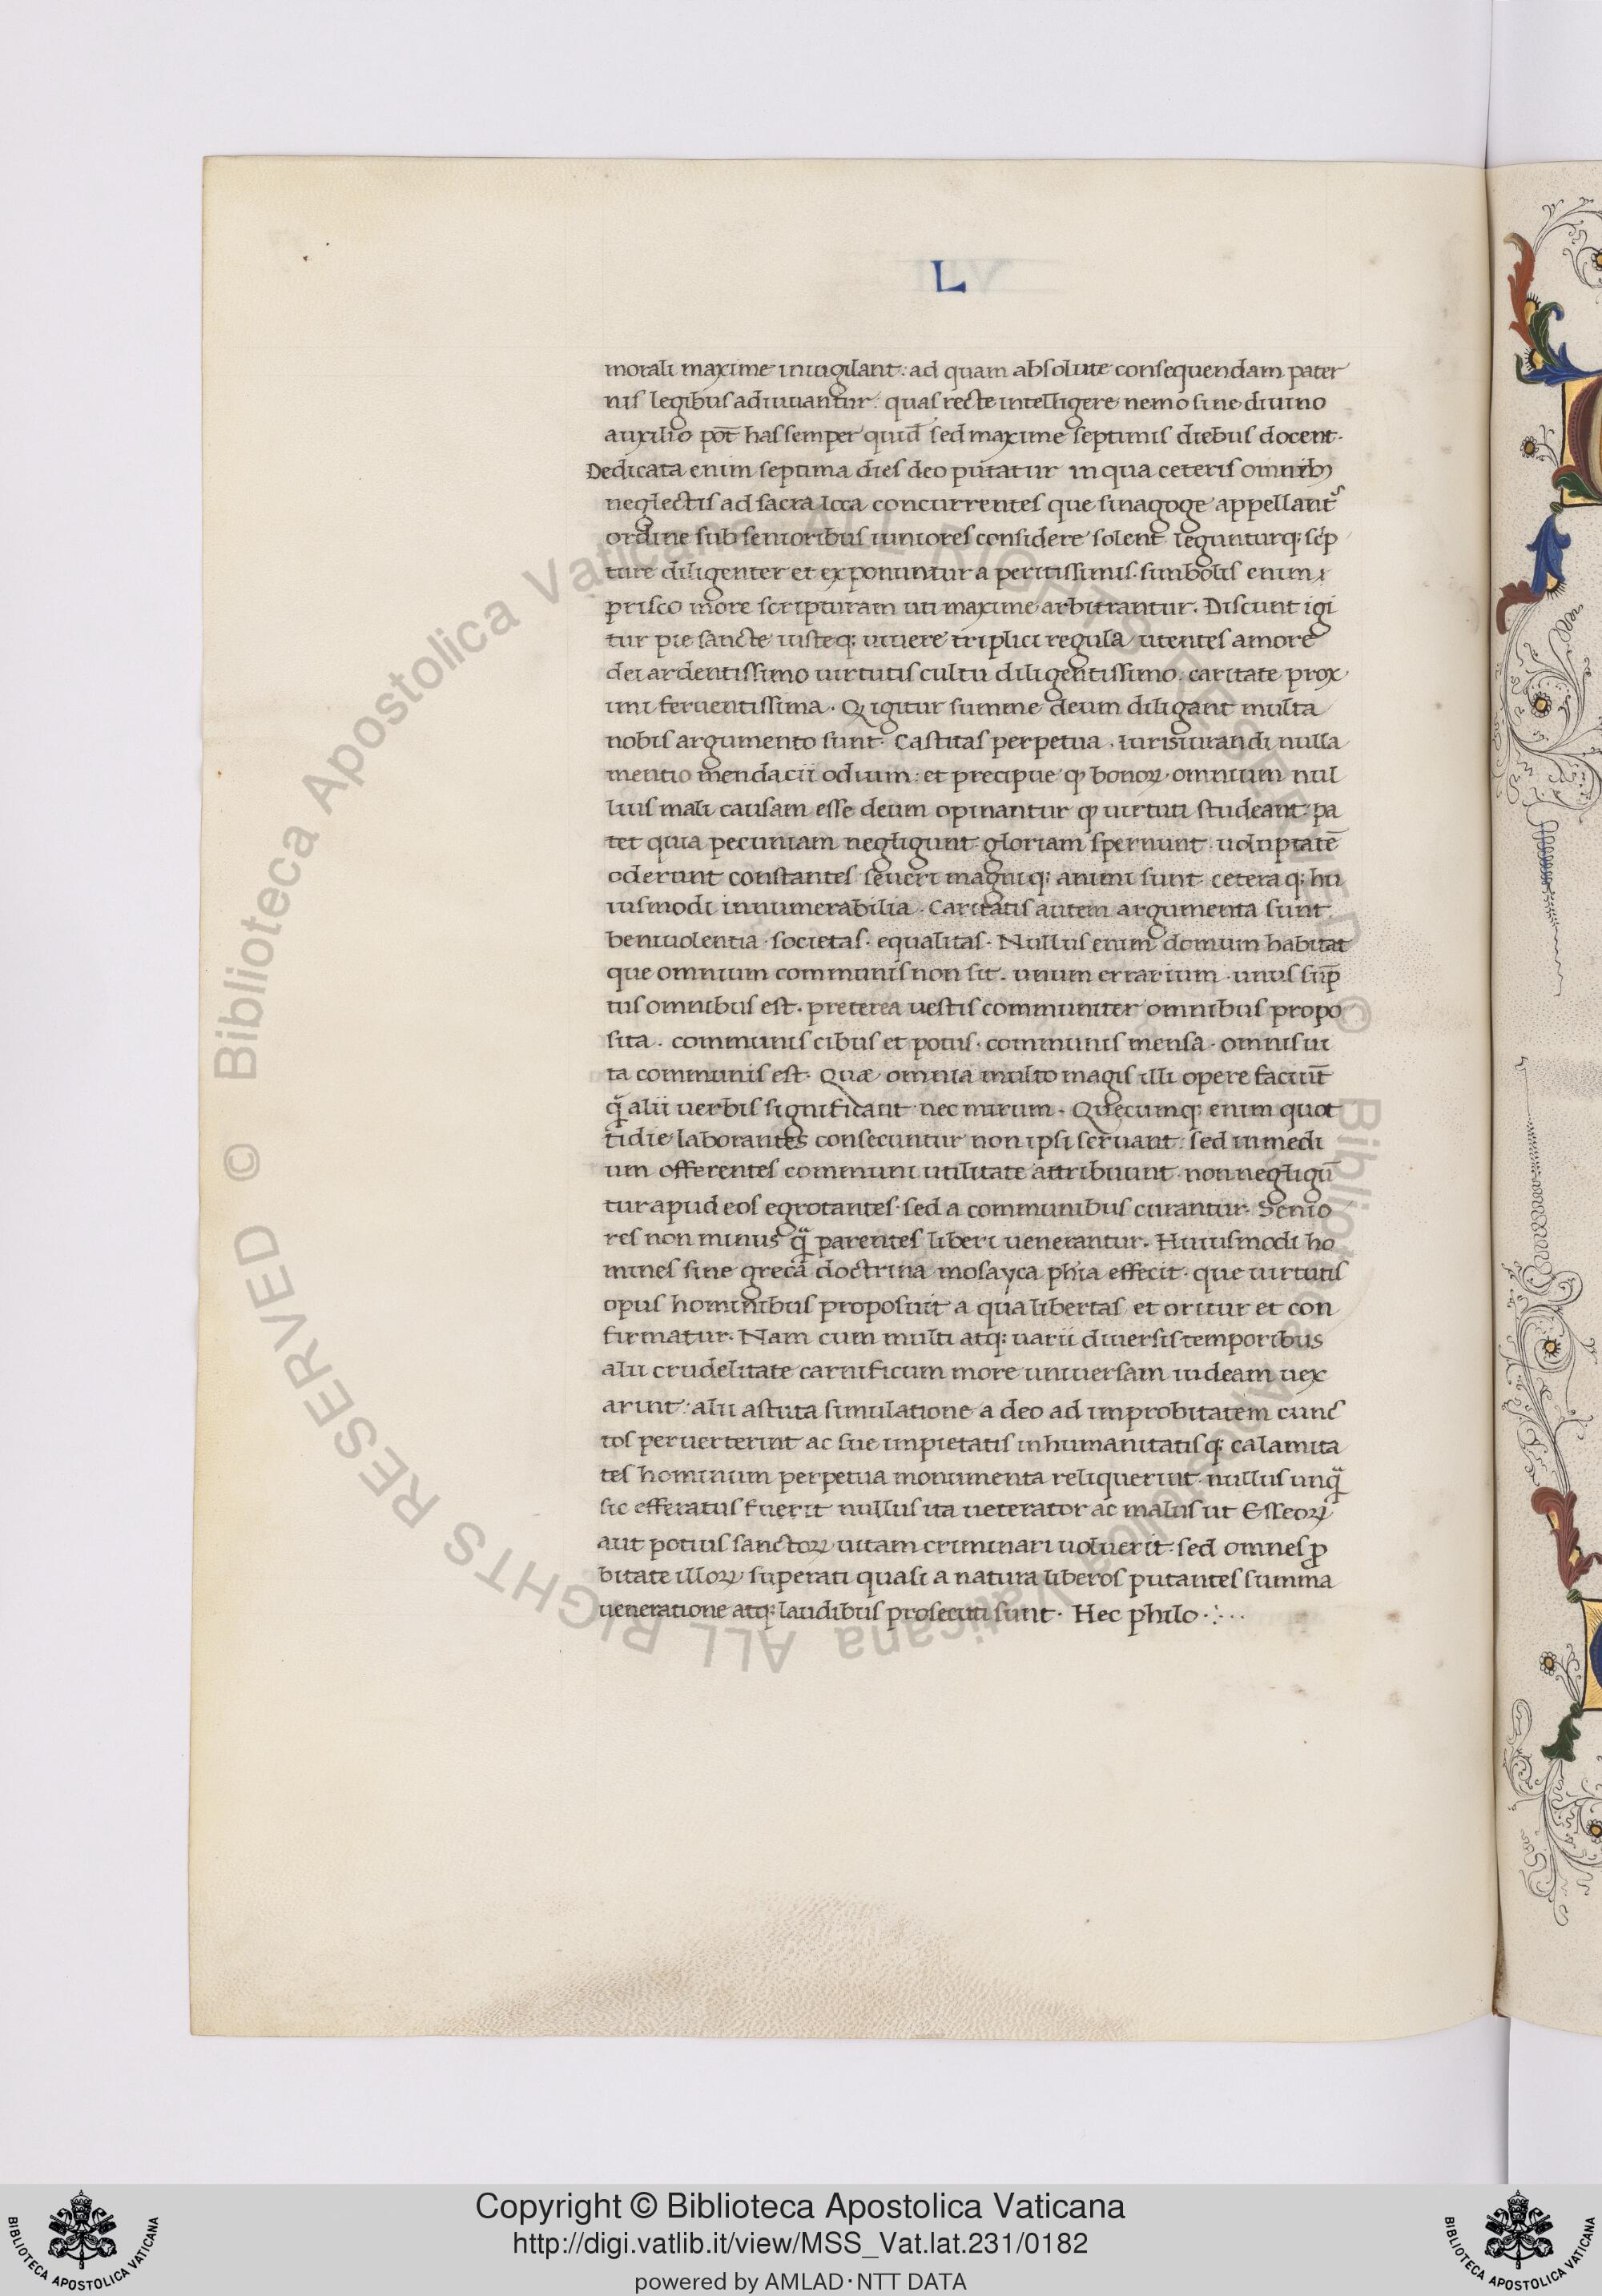 L
morali maxime inuigilant: ad quam absolute consequendam pater
nis legibus adiuuantur: quas recte intelligere nemo sine diuino
auxilio pot̄ has semper quid̄ sed maxime septimis diebus docent.
Dedicata enim septima dies deo putatur in qua ceteris omnibȝ
neglectis ad sacra loca concurrentes que sinagoge appellant᷒
ordine sub senioribus iuniores considere solent legunturq; sc͛p
ture diligenter et exponuntur a peritissimis. simbolis enim
prisco more scripturam uti maxime arbitrantur. Discunt igi
tur pie sancte iusteq; uiuere triplici regula utentes amore
dei ardentissimo uirtutis cultu diligentissimo. caritate prox
imi feruentissima. Ꝙ igitur summe deum diligant multa
nobis argumento sunt. Castitas perpetua. iurisiurandi nulla
mentio mendacii odium: et precipue ꝙ bonoꝝ omnium nul
lius mali causam esse deum opinantur ꝙ uirtuti studeant. pa
tet quia pecuniam negligunt gloriam spernunt uoluptatē
oderunt constantes seueri magniq; animi sunt. ceteraq; hu
iusmodi innumerabilia. Caritatis autem argumenta sunt.
beniuolentia. societas. equalitas. Nullus enim domum habitat
que omnium communis non sit. unum errarium. unus sūp
tus omnibus est. preterea uestis communiter omnibus propo
sita. communis cibus et potus. communis mensa. omnis ui
ta communis est. Quæ omnia multo magis illi opere faciūt
q̃ alii uerbis significant nec mirum. Quecumq; enim quot
tidie laborantes consecuntur non ipsi seruant: sed in medi
um offerentes communi utilitate attribuunt. non negligū
tur apud eos egrotantes. sed a communibus curantur. Senio
res non minus q̃ parentes liberi uenerantur. Huiusmodi ho
mines sine greca doctrina mosayca phīa effecit. que uirtutis
opus hominibus proposuit a qua libertas et oritur et con
firmatur. Nam cum multi atq; uarii diuersis temporibus
alii crudelitate carnificum more uniuersam iudeam uex
arint: alii astuta simulatione a deo ad improbitatem cunc
tos peruerterint ac sue impietatis inhumanitatisq; calamita
tes hominum perpetua monumenta reliquerint. nullus unq̃
sic efferatus fuerit nullus ita ueterator ac malus ut Esseoꝝ
aut potius sanctoꝝ uitam criminari uoluerit. sed omnes ꝓ
bitate illoꝝ superati quasi a natura liberos putantes summa
ueneratione atq; laudibus prosecuti sunt. Hec philo
© Biblioteca Apostolica Vaticana ALL RIGHTS RESERVED
© Biblioteca Apostolica Vaticana ALL RIGHTS RESERVED
Copyright © Biblioteca Apostolica Vaticana
http://digi.vatlib.it/view/MSS_Vat.lat.231/0182
powered by AMLAD·NTT DATA
BIBLIOTECA APOSTOLICA VATICANA
BIBLIOTECA APOSTOLICA VATICANA